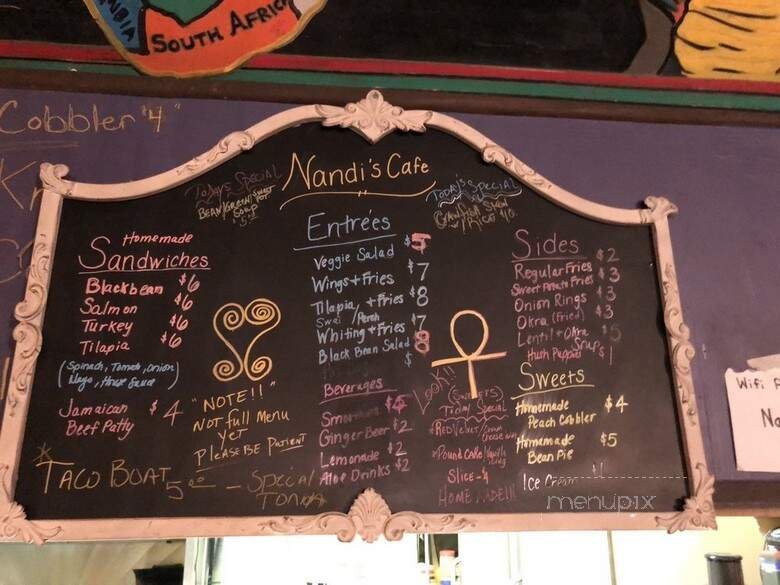 SOUTH AFRICA
Cobbler "4"
Nandi's Cafe
Today's Special
BEAN/GREEN/SWEET POT
SOUP
Today's Special
Homemade
Sandwiches
Blackbean $6
Salmon $6
Turkey $6
Tilapia $6
(Spinach, Tomato, onion
Mayo, House Sauce)
Jamaican $4
Beef Patty
Entrées
Veggie Salad $5
Wings + Fries $7
Tilapia, + Fries $8
Swai / Perch
Whiting + Fries $7
Black Bean Salad 8
$
Beverages
Smoothies $5
Ginger Beer $2
Lemonade $2
Aloe Drinks $2
Sides
Regular Fries $2
Sweet Potato Fries $3
Onion Rings $3
Okra (Fried) $3
Lentil + Okra Soup $5
Hush Puppies $1
Sweets
Homemade $4
Peach Cobbler
Homemade $5
Bean Pie
Ice Cream
"NOTE!!"
NOT Full Menu
yet
Please BE Patient
LOOK!!
Today Special
RED Velvet/Cream
Cheese
Pound Cake/Vanilla
Icing
Slice - 4
HOMEMADE!!!
*TACO BOAT 5.00 - Special
menupix
Wifi